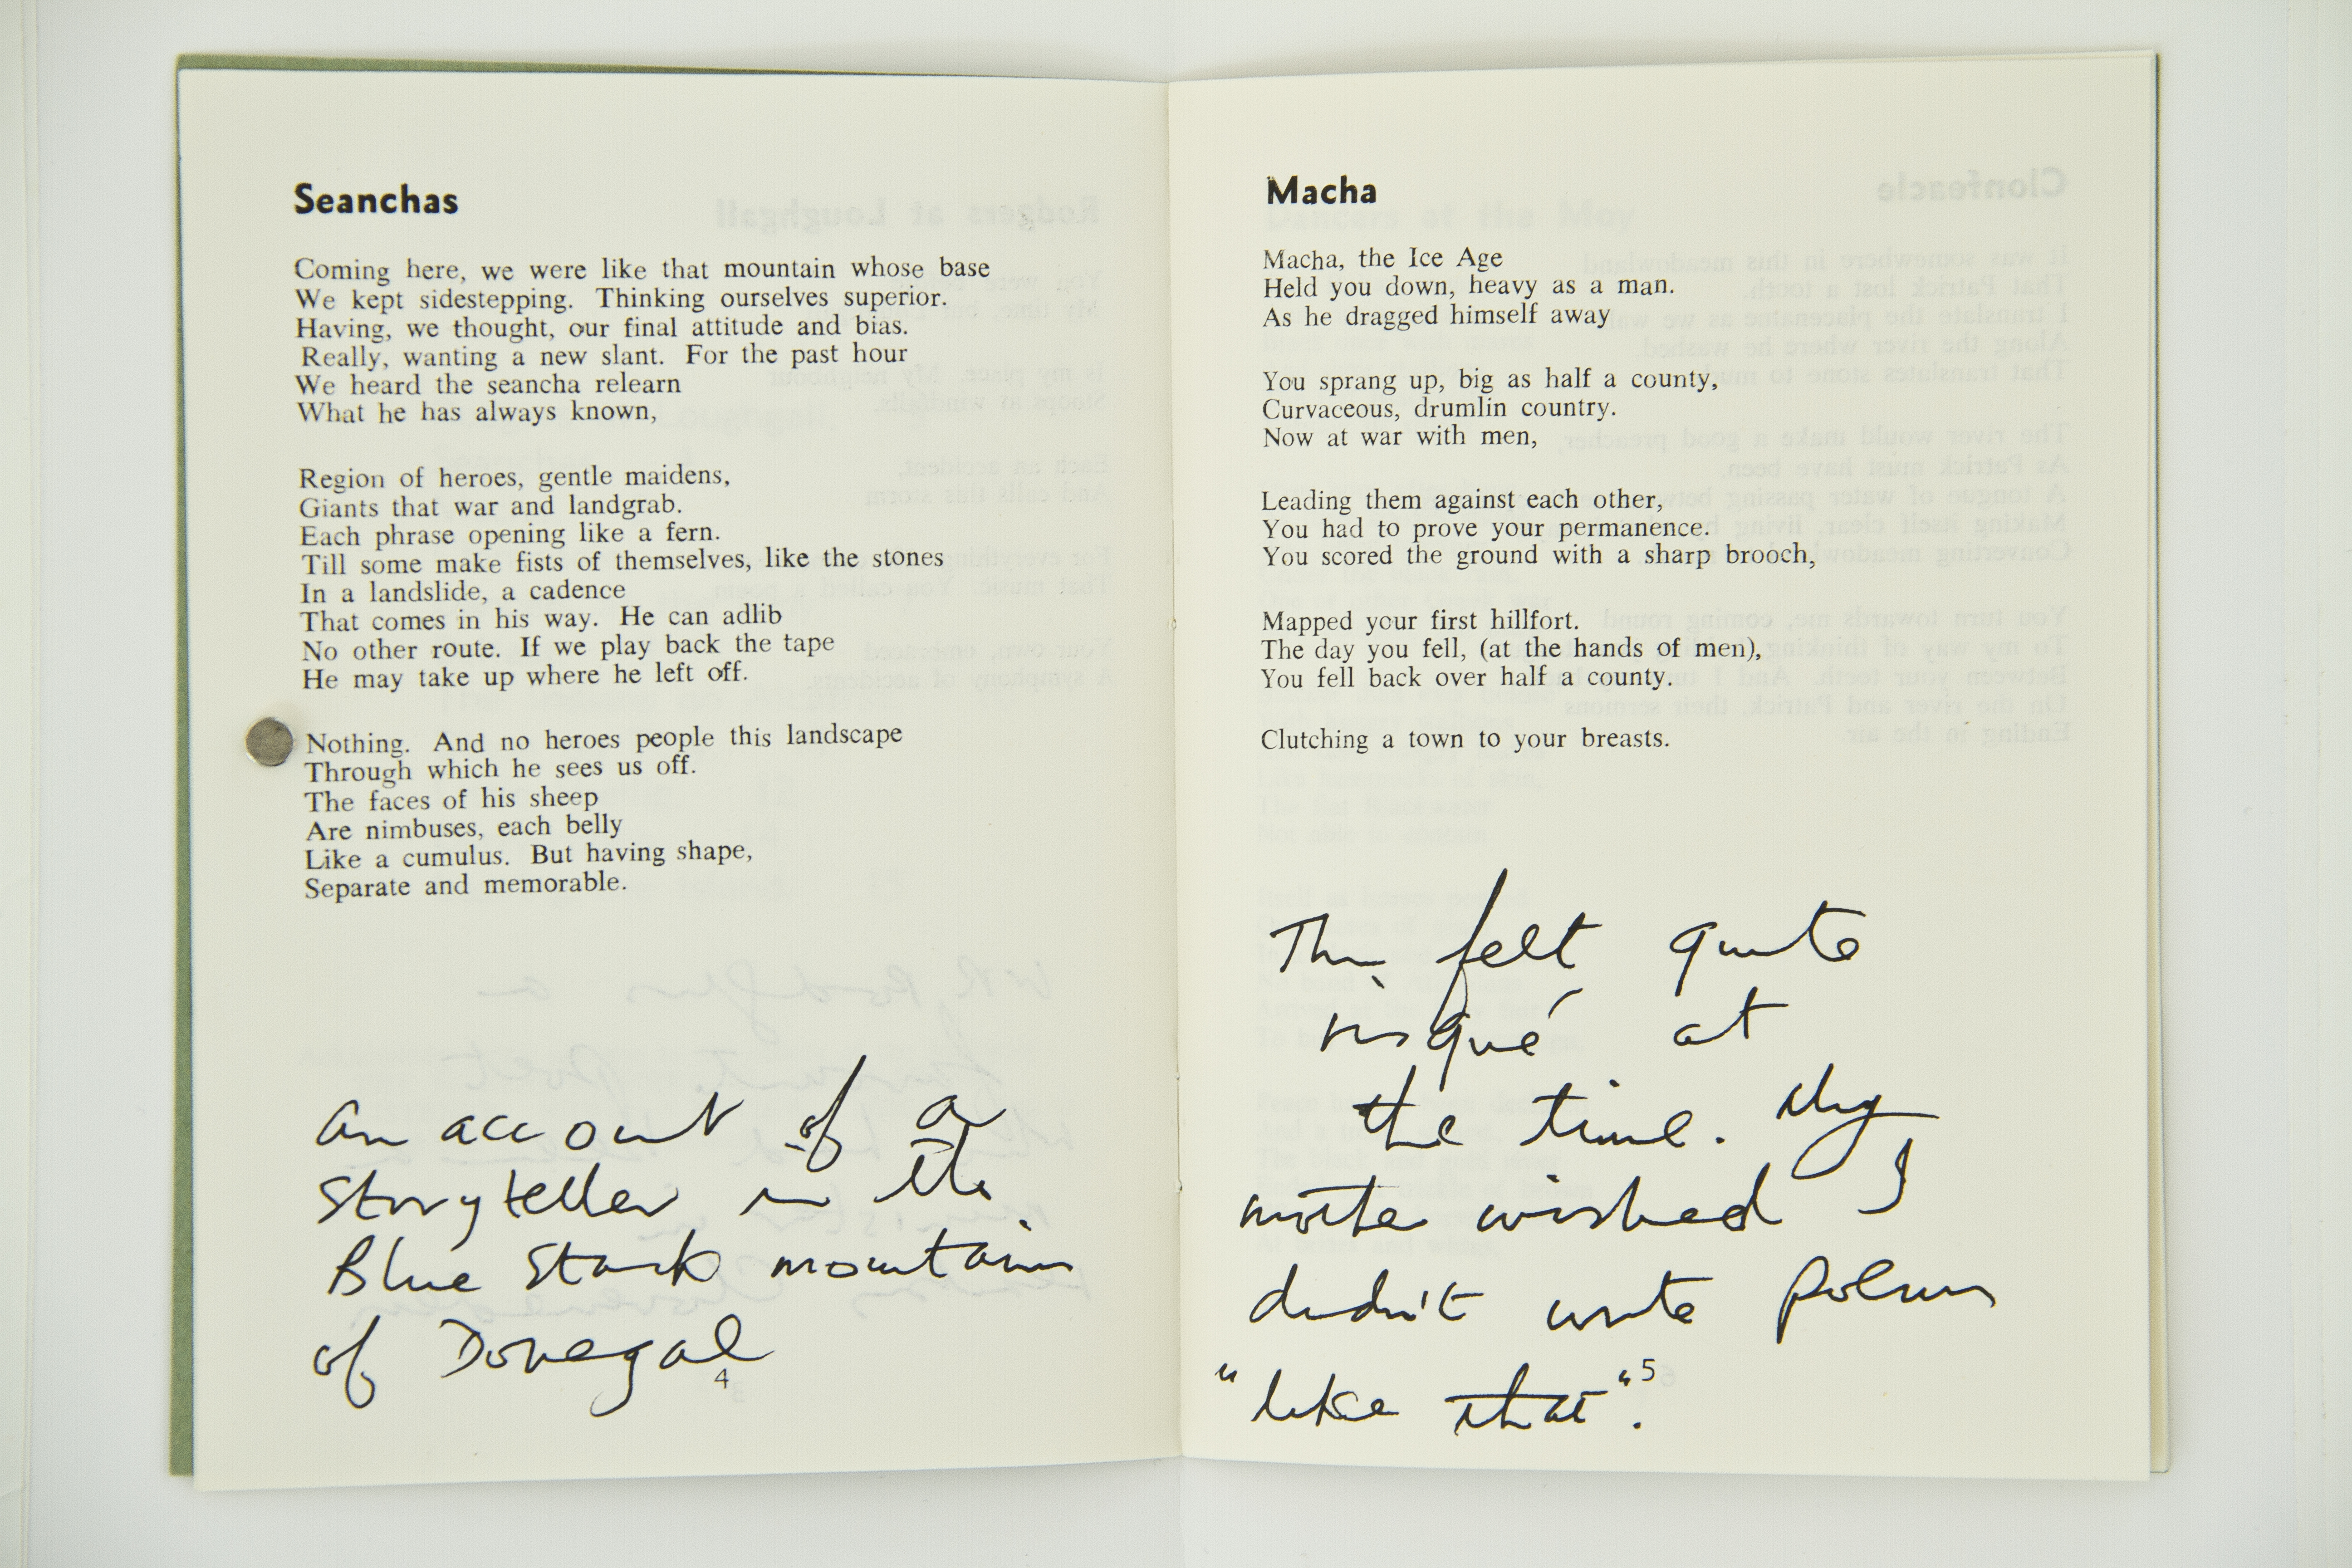 Seanchas
Coming here, we were like that mountain whose base
We kept sidestepping. Thinking ourselves superior.
Having, we thought, our final attitude and bias.
Really, wanting a new slant. For the past hour
We heard the seancha relearn
What he has always known,
Region of heroes, gentle maidens,
Giants that war and landgrab.
Each phrase opening like a fern.
Till some make fists of themselves, like the stones
In a landslide, a cadence
That comes in his way. He can adlib
No other route. If we play back the tape
He may take up where he left off.
Nothing. And no heroes people this landscape
Through which he sees us off.
The faces of his sheep
Are nimbuses, each belly
Like a cumulus. But having shape,
Separate and memorable.
an account of a
storyteller in the
Blue Stack mountains
of Donegal
4
Macha
Macha, the Ice Age
Held you down, heavy as a man.
As he dragged himself away
You sprang up, big as half a county,
Curvaceous, drumlin country.
Now at war with men,
Leading them against each other,
You had to prove your permanence.
You scored the ground with a sharp brooch,
Mapped your first hillfort.
The day you fell, (at the hands of men),
You fell back over half a county.
Clutching a town to your breasts.
This felt quite
risqué at
the time. My
mother wished I
didn't write poems
"like that".
5